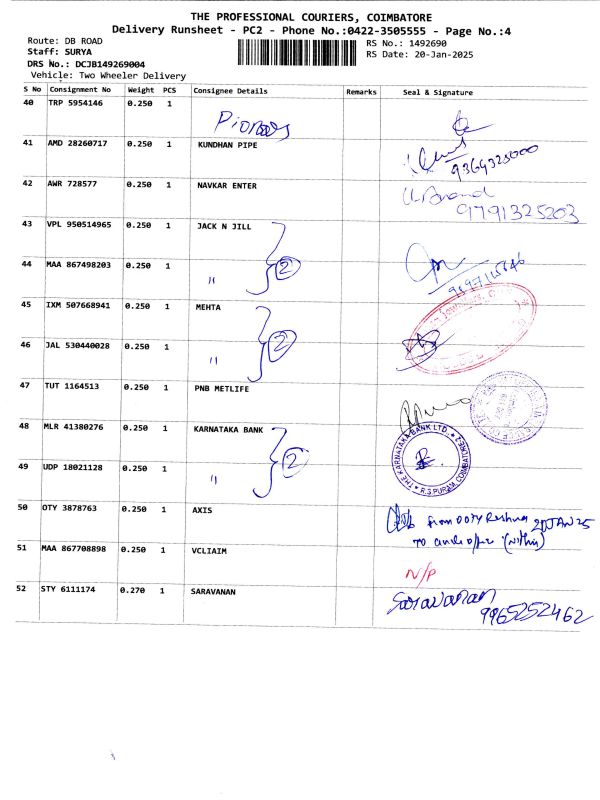 THE PROFESSIONAL COURIERS, COIMBATORE
Delivery Runsheet - PC2 - Phone No.:0422-3505555 - Page No.:4
Route: DB ROAD
RS No.: 1492690
Staff: SURYA
RS Date: 20-Jan-2025
DRS No.: DCJB149269004
Vehicle: Two Wheeler Delivery
S No Consignment No Weight PCS Consignee Details Remarks Seal & Signature
40 TRP 5954146 0.250 1
41 AMD 28260717 0.250 1 KUNDHAN PIPE
9364325000
42 AWR 728577 0.250 1 NAVKAR ENTER
9791325203
43 VPL 950514965 0.250 1 JACK N JILL
2
44 MAA 867498203 0.250 1 "
45 IXM 507668941 0.250 1 MEHTA
2
46 JAL 530440028 0.250 1 "
47 TUT 1164513 0.250 1 PNB METLIFE
48 MLR 41380276 0.250 1 KARNATAKA BANK
THE KARNATAKA BANK LTD.
R.S.PURAM, COIMBATORE-2
2
49 UDP 18021128 0.250 1 "
50 OTY 3878763 0.250 1 AXIS
from OOTY 20 JAN 25
TO circle office (within)
51 MAA 867708898 0.250 1 VCLIAIM
N/P
52 STY 6111174 0.270 1 SARAVANAN
Saravanan
9965252462